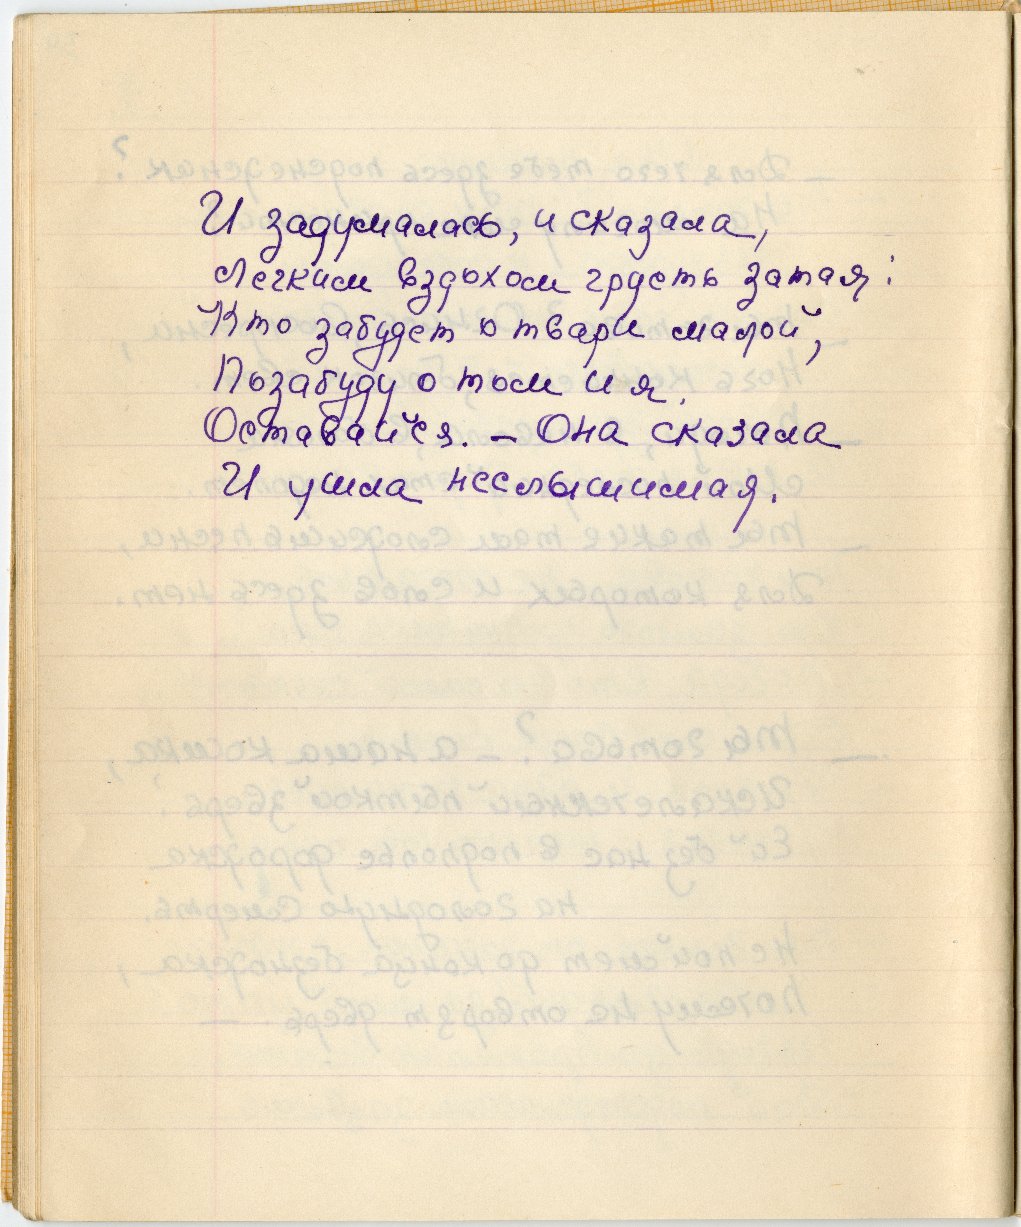 И задумалась, и сказала,
Легким вздохом грусть затая:
Кто забудет о твари малой,
Позабуду о том и я.
Оставайся. – Она сказала
И ушла неслышимая.